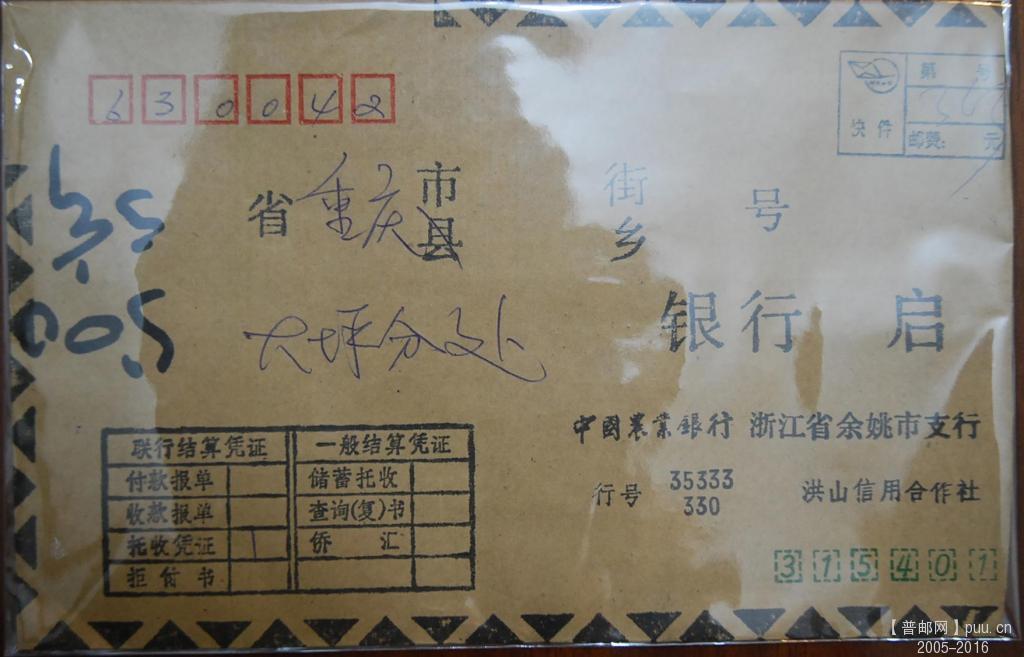 630042
第 号
快件
邮费: 元
省 重庆 市
县
街
乡
号
大坪分理处
银行 启
中國農業銀行 浙江省余姚市支行
行号 35333
330
洪山信用合作社
315401
联行结算凭证 一般结算凭证
付款报单 储蓄托收
收款报单 查询(复)书
托收凭证 1 侨 汇
拒付书
【普邮网】puu.cn
2005-2016